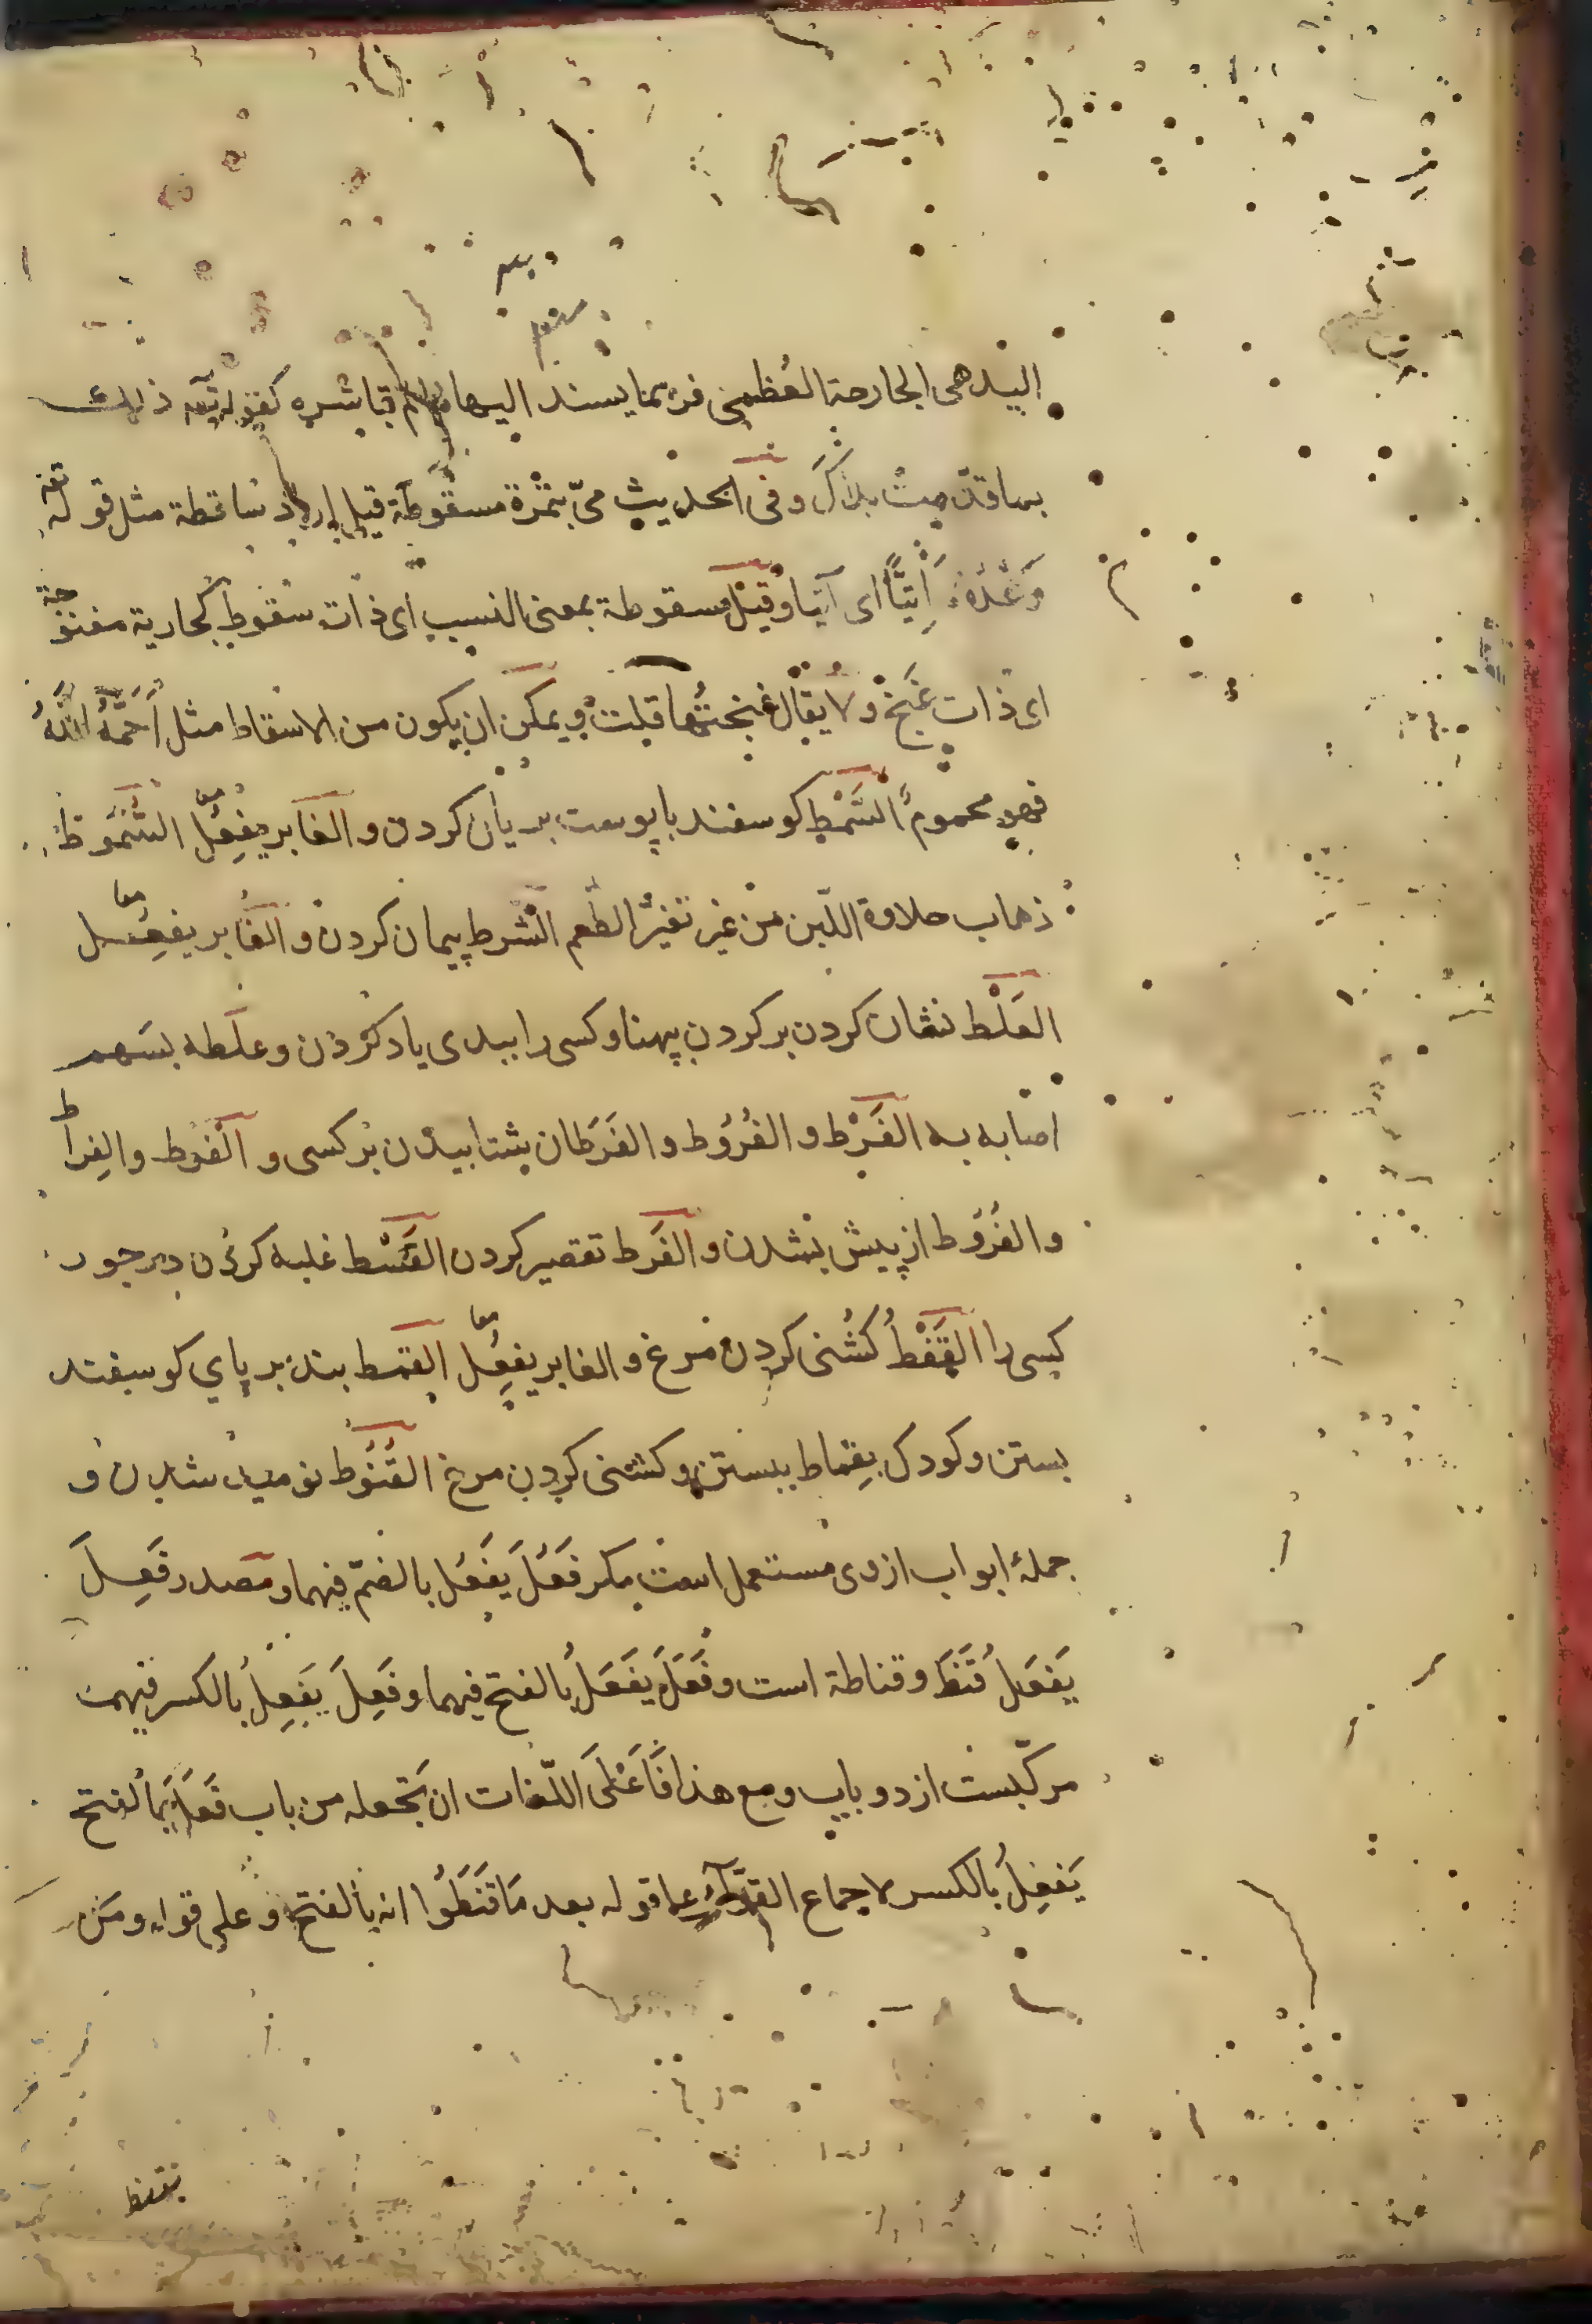 اليد هي الجارحة العظمى فربما يسند اليها ما لم تباشره كقوله تعه ذلك
بما قدّمت يداك وفي الحديث مرّ بتمرة مسقوطة قيل اراد ساقطة مثل قوله تعه
وَعْدُهُ مَأتِيًّا اى آتيا وقيل مسقوطة بمعنى النسب اى ذات سقوط كجارية مغنوجة
اى ذات غنج ولا يقال غنجتُها قلت ويمكن ان يكون من الاسقاط مثل اَحَمَّهُ اللّٰهُ
فهو محمومٌ السَّمْط كوسفند با پوست بريان كردن والغابر يفعُِل معا السُّمُوط
ذهاب حلاوة اللّبن من غير تغيّر الطّعم الشرط پيمان كردن والغابر يفعُِل معا
العَلْط نشان كردن بر كردن پهنا وكسى را ببدى ياد كردن وعلطه بسهم
اصابه به الفَرْط والفُرُوط والفَرَطان بشتابيدن بر كسى و الفَرْط والفِراط
والفُرُوط از پيش بشدن و الفَرط تقصير كردن القَسْط غلبه كردن بر جور
كسى را القَفْطُ كُشنى كردن مرغ والغابر يفعُِل معا القمط بند بر پاي كوسفند
بستن وكودك بقِماط ببستن وكشنى كردن مرغ القُنُوط نوميد شدن و
جملۀ ابواب از وى مستعمل است مكر فَعُلَ يَفعُل بالضمّ فيهما ومصدر فَعِلَ
يَفعَلُ قَنَط وقناطة است وفَعَلَ يَفعَلُ بالفتح فيهما وفَعِلَ يَفعِلُ بالكسر فيهما
مركّبست از دو باب ومع هذا فَاَعْلَى اللّغات ان تجعله من باب فَعَلَ بالفتح
يَفعِلُ بالكسر لاجماع القرّاء على قوله بعد مَا قَنَطُوْا انه بالفتح وعلى قوله ومَن
يقنط